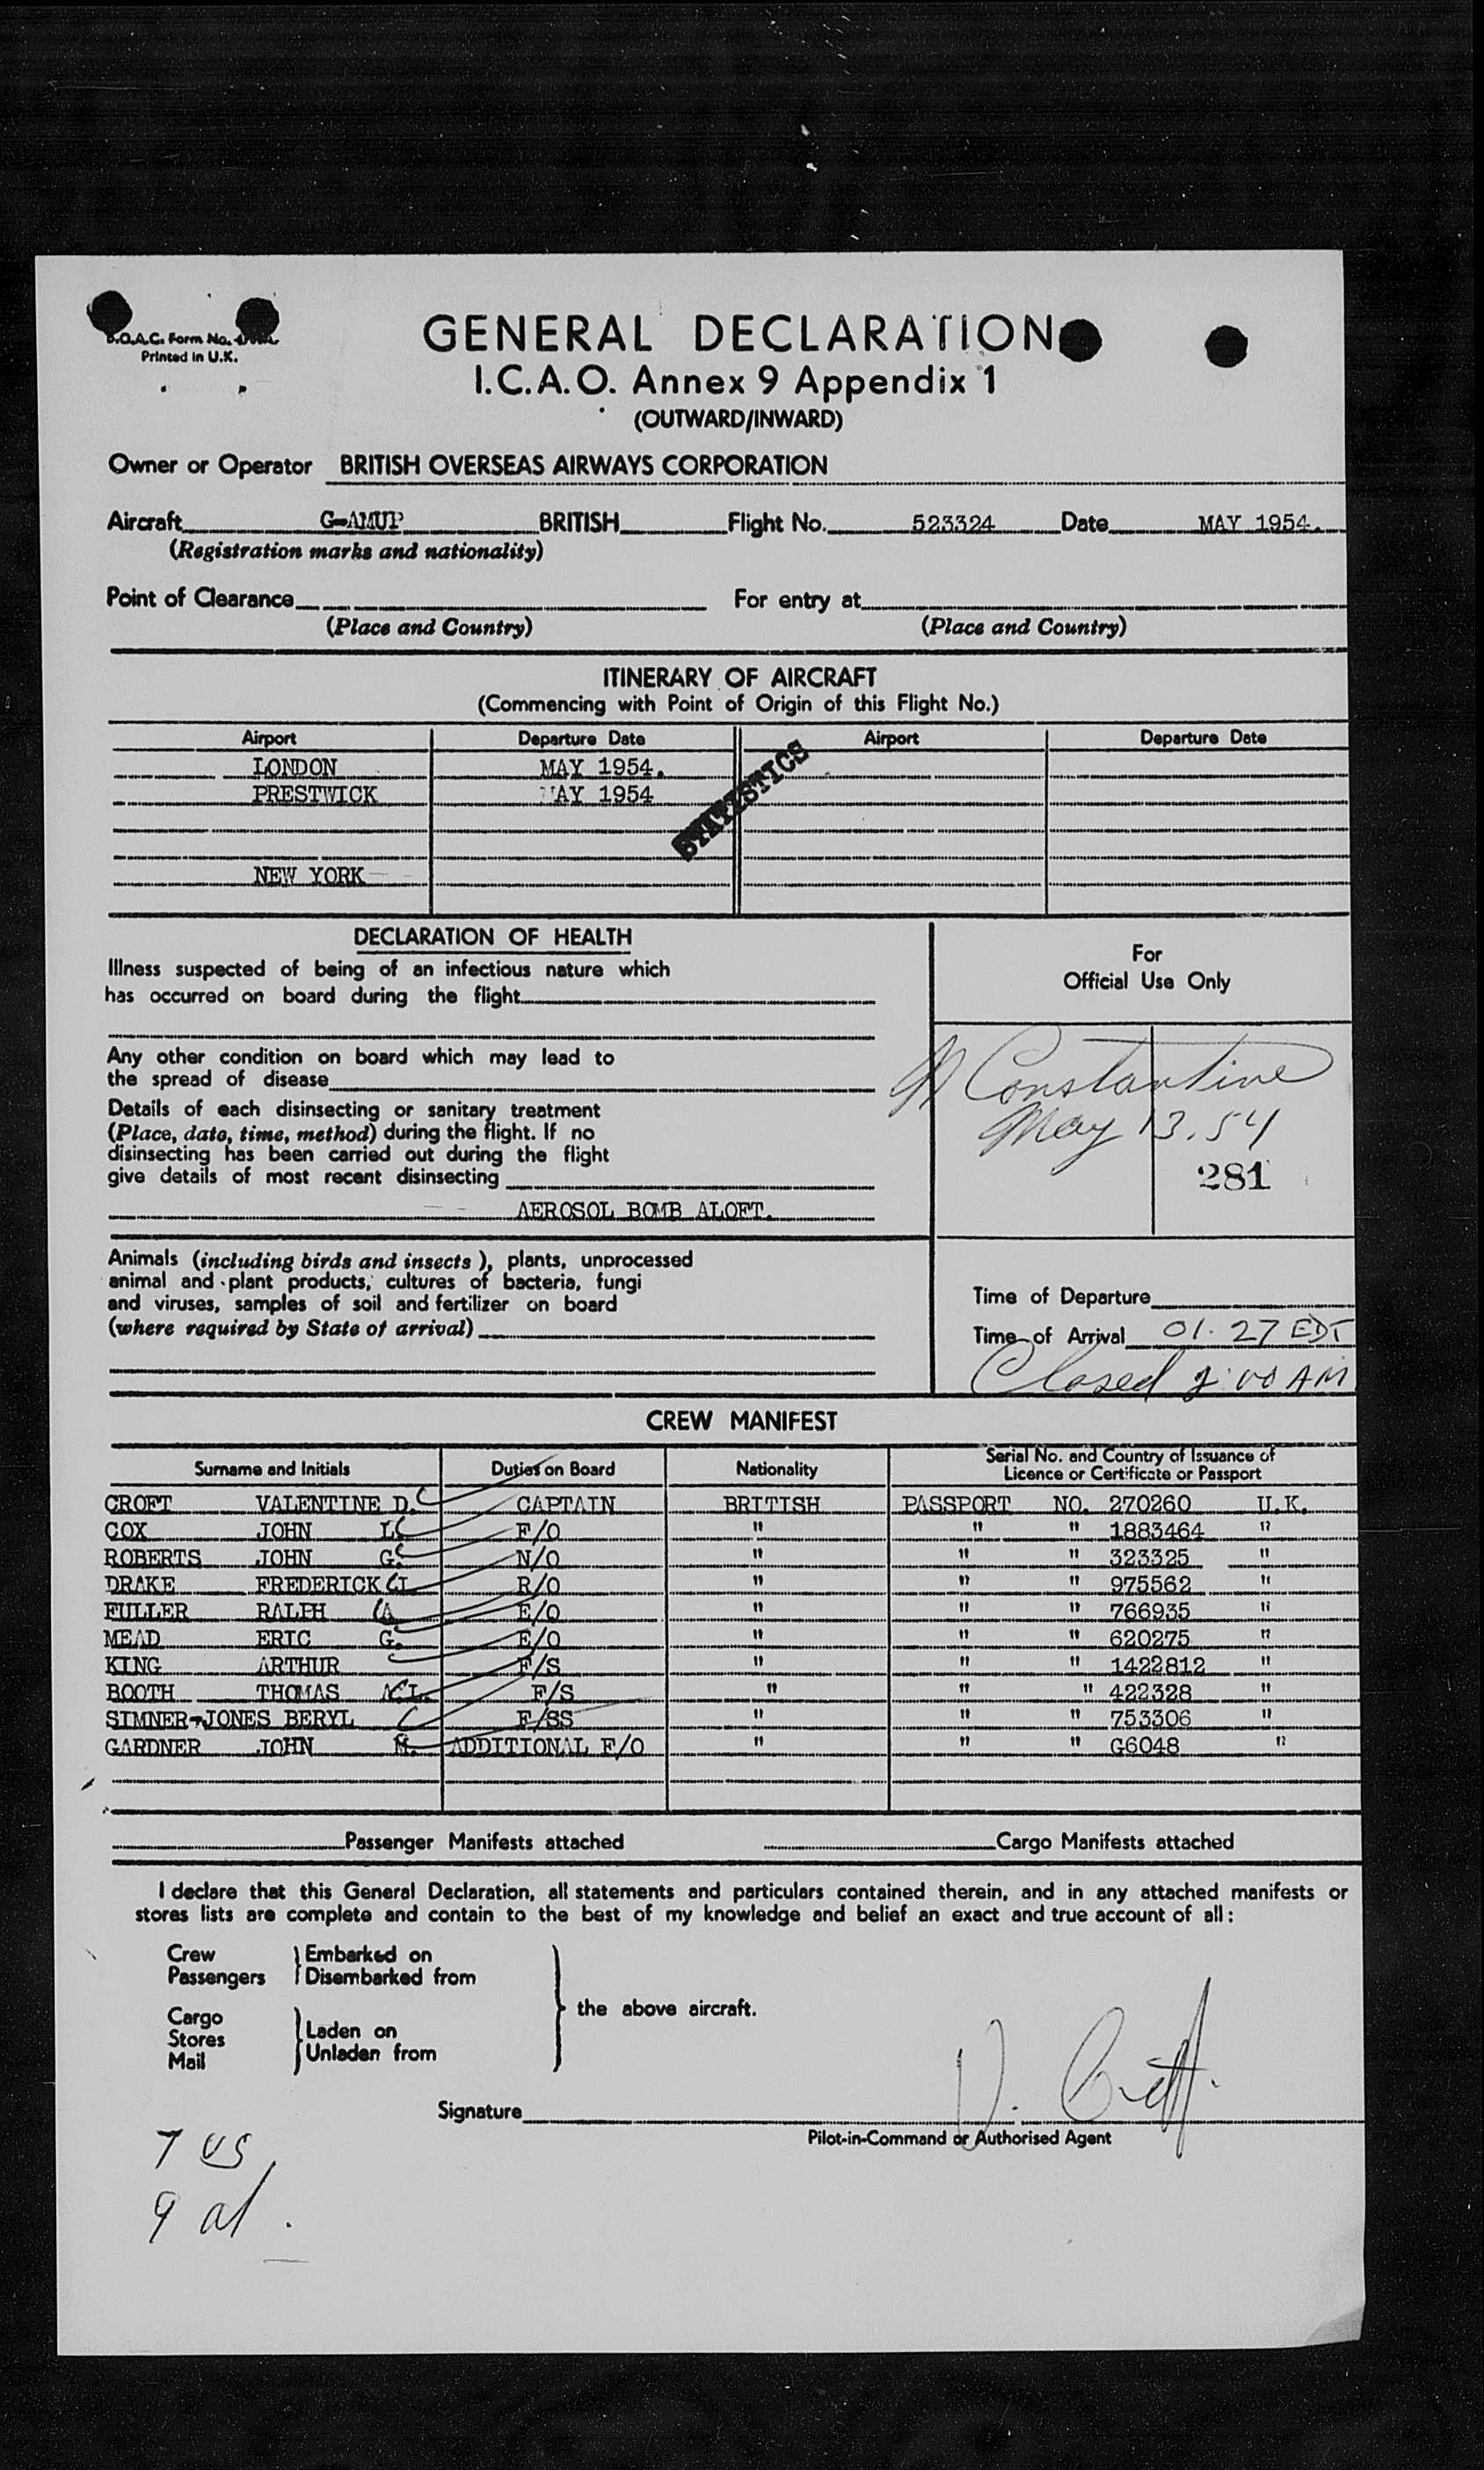 B.O.A.C. Form No.
Printed in U.K.
GENERAL DECLARATION
I.C.A.O. Annex 9 Appendix 1
(OUTWARD/INWARD)
Owner or Operator BRITISH OVERSEAS AIRWAYS CORPORATION
Aircraft G-AMUP BRITISH Flight No. 523324 Date MAY 1954.
(Registration marks and nationality)
Point of Clearance For entry at
(Place and Country) (Place and Country)
ITINERARY OF AIRCRAFT
(Commencing with Point of Origin of this Flight No.)
Airport Departure Date Airport Departure Date
LONDON MAY 1954.
PRESTWICK MAY 1954
STATISTICS
NEW YORK
DECLARATION OF HEALTH
Illness suspected of being of an infectious nature which
has occurred on board during the flight
Any other condition on board which may lead to
the spread of disease
Details of each disinsecting or sanitary treatment
(Place, date, time, method) during the flight. If no
disinsecting has been carried out during the flight
give details of most recent disinsecting
AEROSOL BOMB ALOFT.
Animals (including birds and insects), plants, unprocessed
animal and plant products, cultures of bacteria, fungi
and viruses, samples of soil and fertilizer on board
(where required by State of arrival)
For
Official Use Only
Constantine
May 13.54
281
Time of Departure
Time of Arrival 01.27 EDT
Closed 2:00 AM
CREW MANIFEST
Surname and Initials Duties on Board Nationality Serial No. and Country of Issuance of
Licence or Certificate or Passport
CROFT VALENTINE D. CAPTAIN BRITISH PASSPORT NO. 270260 U.K.
COX JOHN L F/O " " " 1883464 "
ROBERTS JOHN G. N/O " " " 323325 "
DRAKE FREDERICK R/O " " " 975562 "
FULLER RALPH A E/O " " " 766935 "
MEAD ERIC G. E/O " " " 620275 "
KING ARTHUR F/S " " " 1422812 "
BOOTH THOMAS F/S " " " 422328 "
SIMNER-JONES BERYL F/SS " " " 753306 "
GARDNER JOHN M. ADDITIONAL F/O " " " G6048 "
Passenger Manifests attached Cargo Manifests attached
I declare that this General Declaration, all statements and particulars contained therein, and in any attached manifests or
stores lists are complete and contain to the best of my knowledge and belief an exact and true account of all:
Crew Embarked on
Passengers Disembarked from
the above aircraft.
Cargo
Stores Laden on
Mail Unladen from
Signature V. Croft
Pilot-in-Command or Authorised Agent
7 US
9 al.